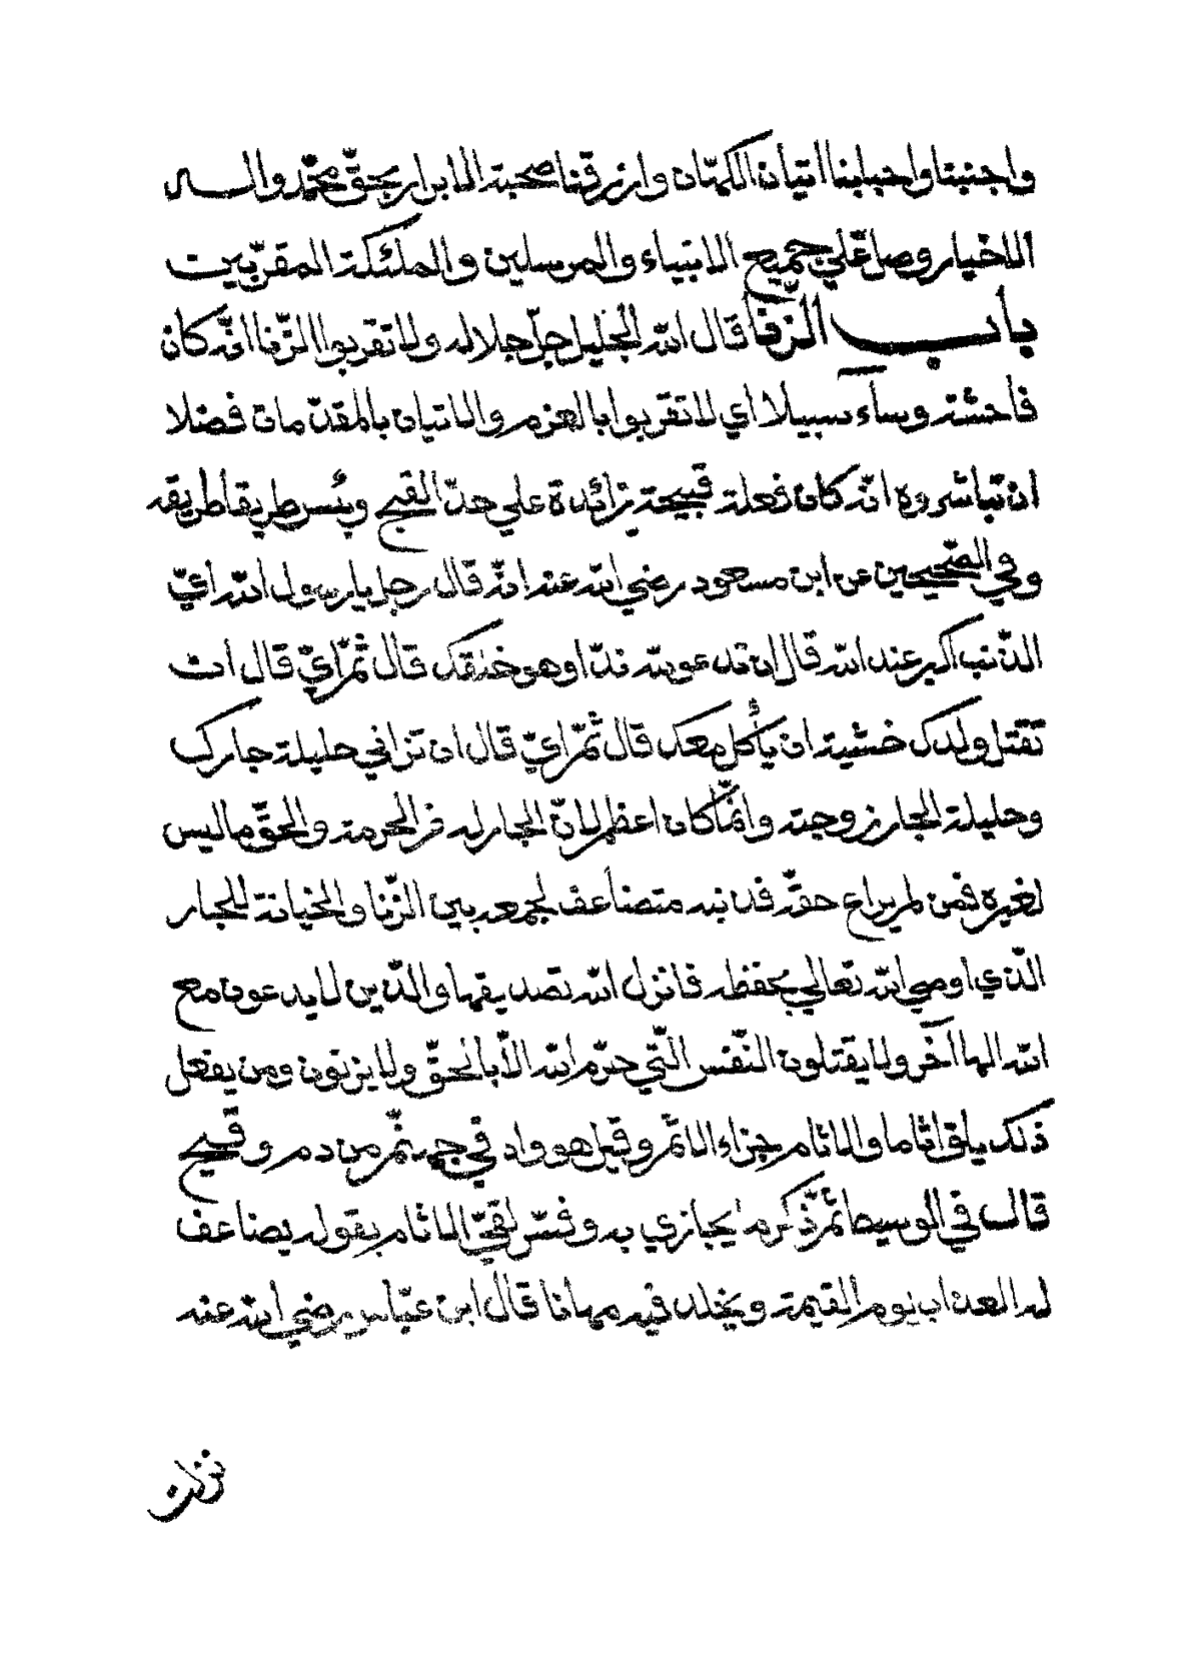 واجنبنا واحبابنا اتيان الكهّان وارزقنا صحبة الابرار بحقّ محمّد واله
الاخيار وصل علي جميع الانبياء والمرسلين والملئكة المقرّبين
باب الزّنا قال الله الجليل جلّ جلاله ولا تقربوا الزّنا انّه كان
فاحشة وساء سبيلا اي لا تقربوا بالعزم والاتيان بالمقدّمات فضلا
ان تباشروه انّه كان فعلة قبيحة زائدة علي حدّ القبح وبئس طريقا طريقه
وفي الصّحيحين عن ابن مسعود رضي الله عنه انّه قال رجل يا رسول الله ايّ
الذّنب اكبر عند الله قال ان تدعو لله ندّا وهو خلقك قال ثمّ ايّ قال ان
تقتل ولدك خشية ان يأكل معك قال ثمّ ايّ قال ان تزاني حليلة جارك
وحليلة الجار زوجته وانّما كان اعظم لانّ الجار له من الحرمة والحقّ ما ليس
لغيره فمن لم يراع حقّه فذنبه متضاعف لجمعه بين الزّنا والخيانة للجار
الّذي اوصي الله تعالي بحفظه فانزل الله تصديقها والّذين لا يدعون مع
الله الها آخر ولا يقتلون النّفس الّتي حرّم الله الّا بالحقّ ولا يزنون ومن يفعل
ذلك يلق اثاما والاثام جزاء الاثم وقيل هو واد في جهنّم من دم وقيح
قال في الوسيط ثمّ ذكر ما يجازي به وفسّر لقيّ الاثام بقوله يضاعف
له العذاب يوم القيمة ويخلد فيه مهانا قال ابن عبّاس رضي الله عنه